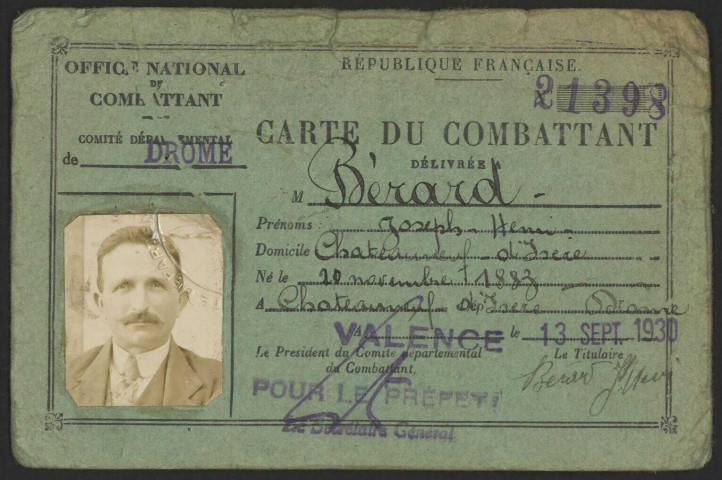 OFFICE NATIONAL
DU
COMBATTANT
COMITÉ DÉPARTEMENTAL
de DROME
RÉPUBLIQUE FRANÇAISE.
21398
CARTE DU COMBATTANT
DÉLIVRÉE A
M Bérard -
Prénoms : Joseph - Henri -
Domicile Chateauneuf d'Isère
Né le 20 novembre 1883
A Chateauneuf d'Isère Drome
A VALENCE le 13 SEPT. 1930
Le President du Comité départemental
du Combattant.
Le Titulaire
Berard Henri
POUR LE PRÉFET:
Le Secrétaire Général